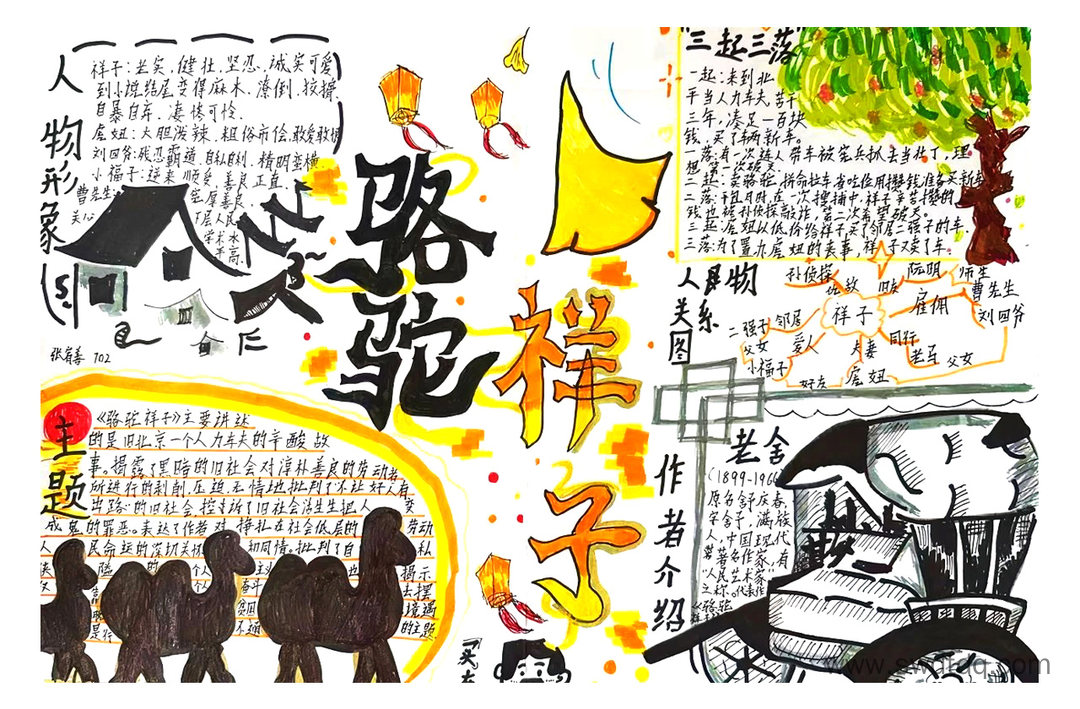 人物形象
祥子:坐实,健壮,坚忍,诚实可爱
到小说结尾变得麻木、潦倒、狡猾、
自暴自弃、凄惨可怜
虎妞:大胆泼辣、粗俗市侩、敢爱敢恨
刘四爷:残忍霸道,自私自利、精明蛮横
小福子:逆来顺受 善良正直
曹先生
宽厚善良
关心
下层人民
学术水
平高.
张 102
骆驼
祥子
"三起三落"
一起:来到北
平当人力车夫,苦干
三年,凑足一百块
钱,买了辆新车。
一落:有一次连人带车被宪兵抓去当壮丁,理
想第一次破灭
二起:卖骆驼,拼命拉车,省吃俭用攒钱准备买新车
二落:干包月时,在一次搜捕中,祥子辛苦攒的
钱也被孙侦探敲诈,第二次希望破灭。
三起:虎妞以低价给祥子买了邻居二强子的车.
三落:为了置办虎妞的丧事,祥子又卖了车.
人物
关系
图
孙侦探
阮明
师生
曹先生
刘四爷
雇佣
祥子
二强子
邻居
父女
爱人
小福子
夫妻
同行
老马
父女
好友
虎妞
主题
《骆驼祥子》主要讲述
的是旧北京一个人力车夫的辛酸故
事。揭露了黑暗的旧社会对淳朴善良的劳动者
所进行的剥削、压迫,无情地批判了不让好人有
出路的旧社会,控诉了旧社会活生生把人 变
成鬼的罪恶。表达了作者对 挣扎在社会低层的 劳动
人 民命运的深切关
同情。批判了自 私
揭示
去摆
境遇
的主题
作者介绍
老舍
(1899-1966
原名舒庆春,
字舍予,满族
人,中国现代
著名作家,有
"人民艺术家"
之称。代表作
《骆驼
www.swdtqq.com